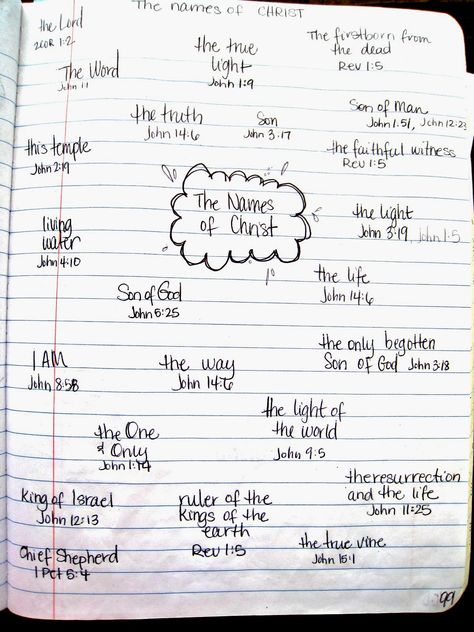 The names of CHRIST
the Lord
2COR 1:2
The Word
John 1:1
the true
light
John 1:9
The firstborn from
the dead
Rev 1:5
the truth
John 14:6
Son
John 3:17
Son of Man
John 1:51, John 12:23
this temple
John 2:19
the faithful witness
Rev 1:5
The Names
of Christ
living
water
John 4:10
the light
John 3:19, John 1:5
the life
John 14:6
Son of God
John 5:25
I AM
John 8:58
the way
John 14:6
the only begotten
Son of God John 3:18
the One
& Only
John 1:14
the light of
the world
John 9:5
the resurrection
and the life
John 11:25
King of Israel
John 12:13
ruler of the
Kings of the
earth
Rev 1:5
Chief Shepherd
1 Pet 5:4
the true vine
John 15:1
99